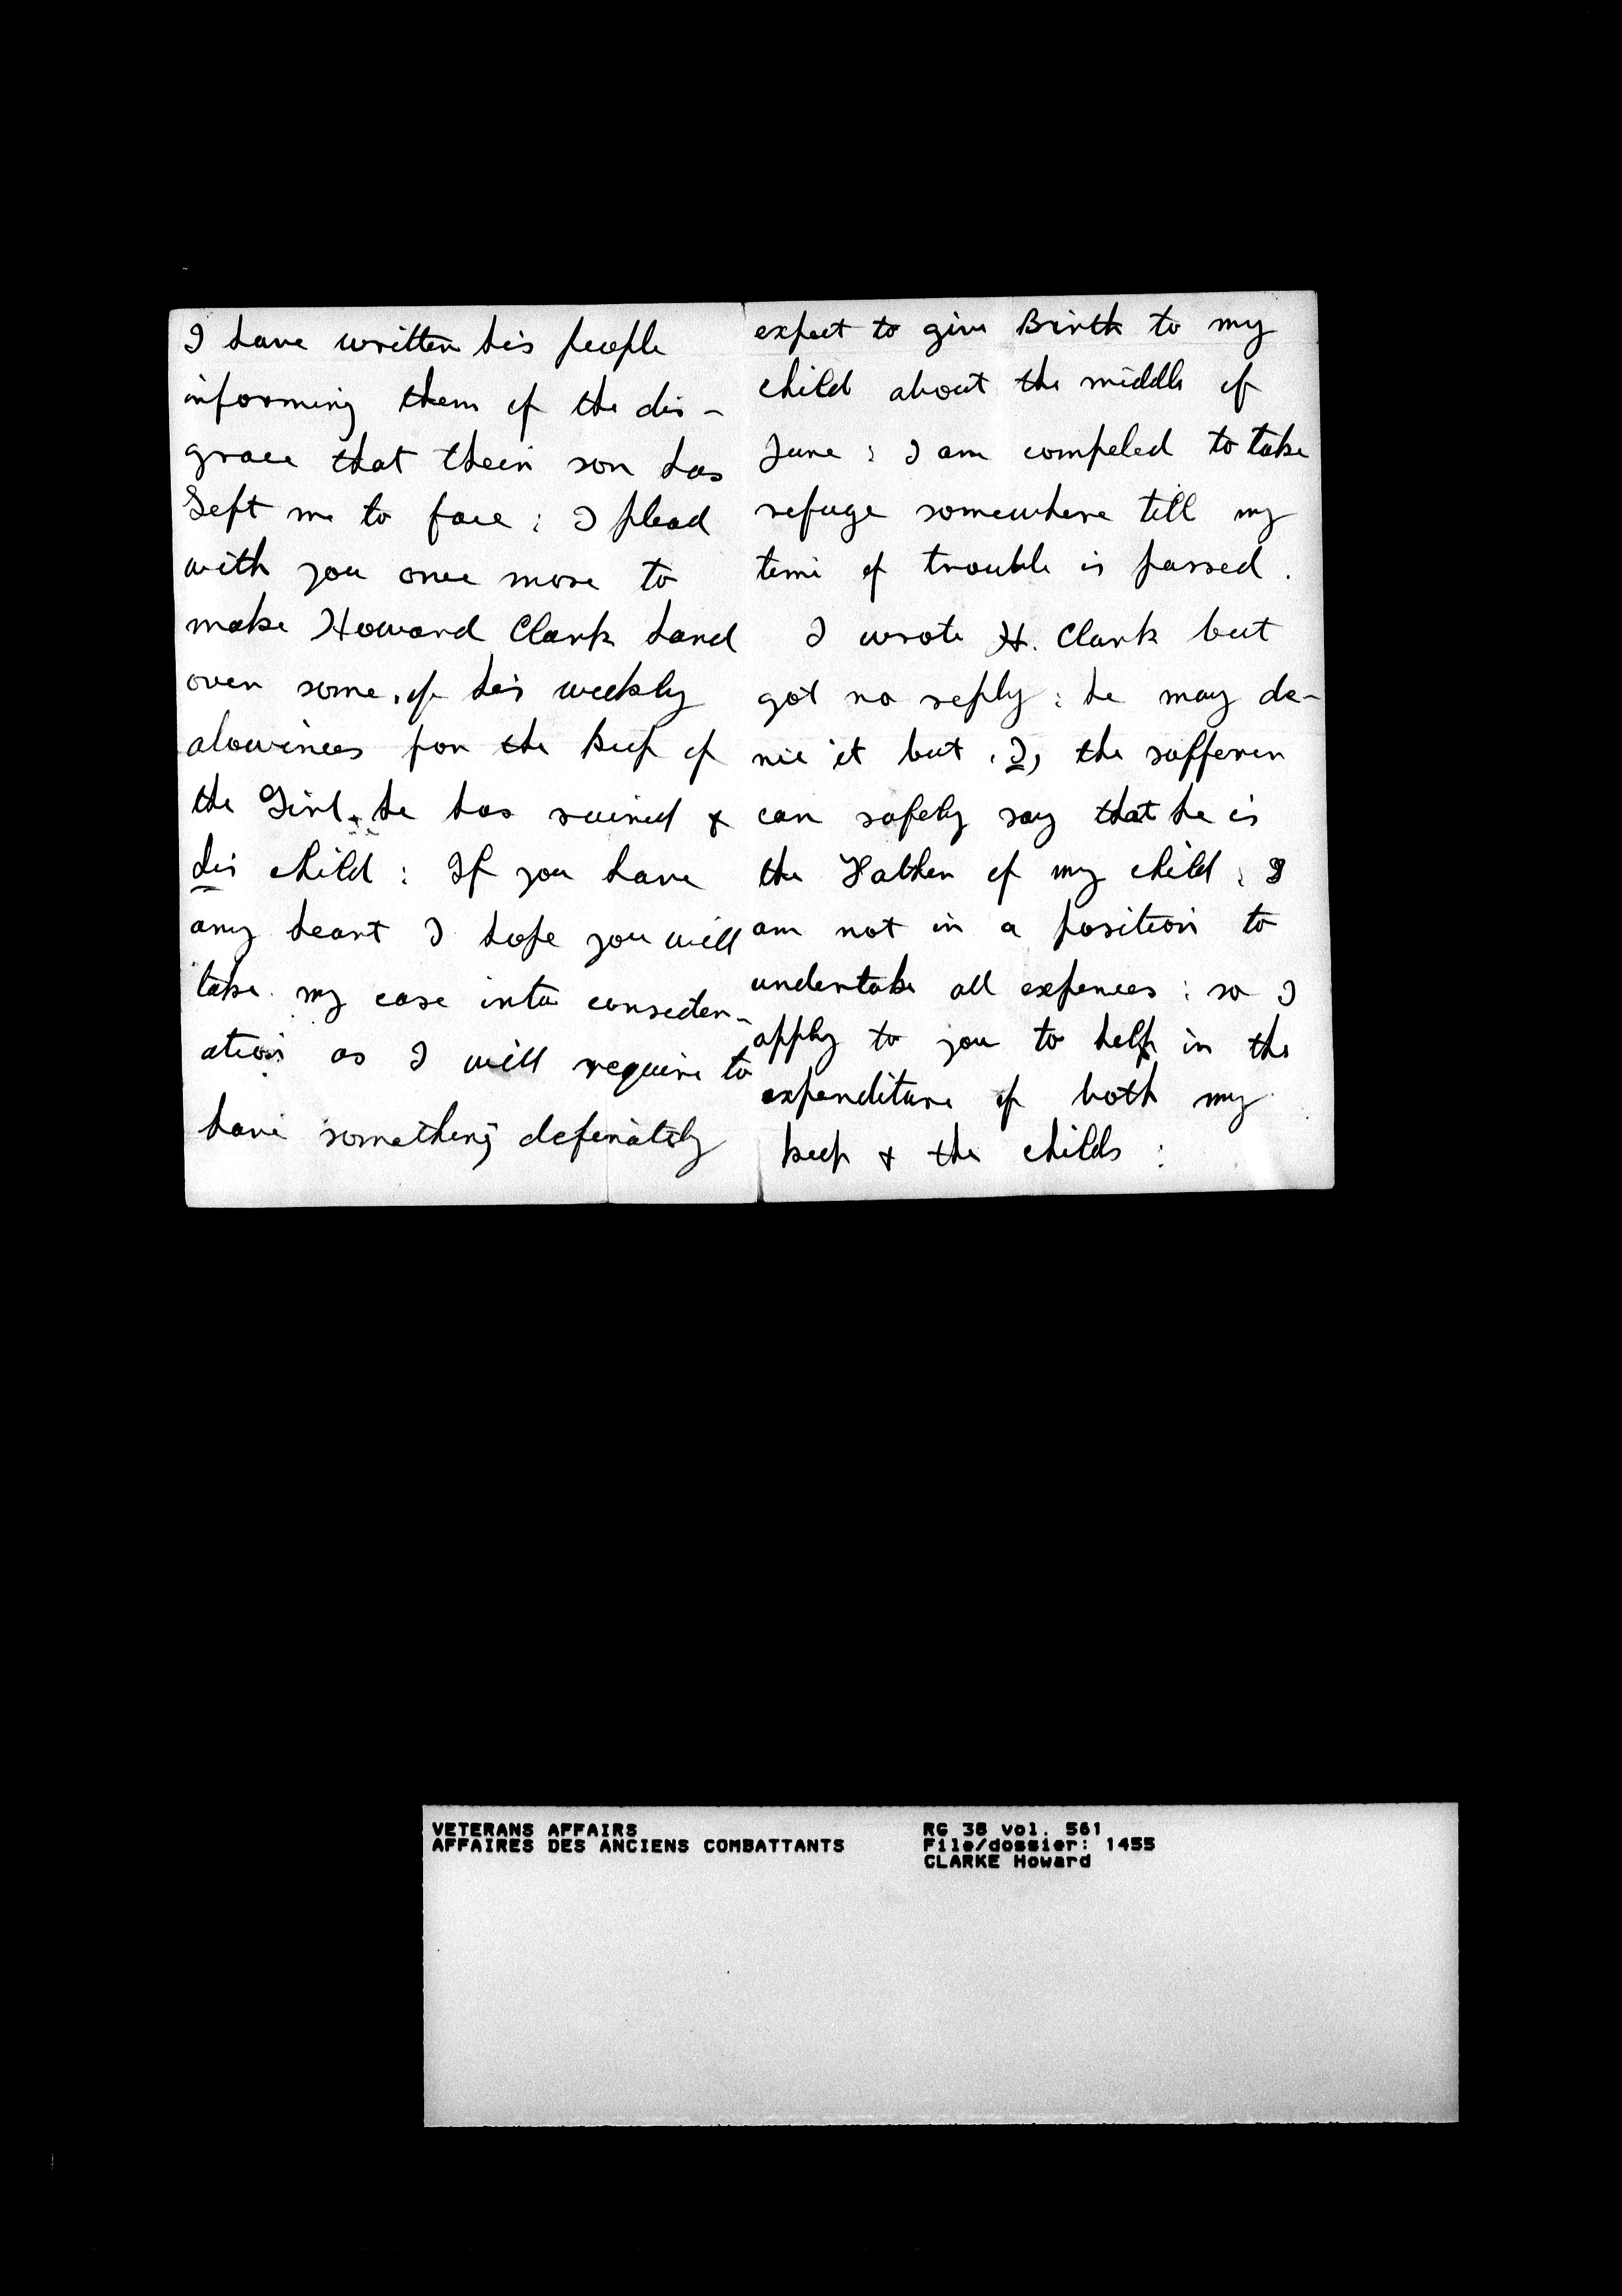 I have written his people
informing them of the dis-
grace that their son has
left me to face : I plead
with you once more to
make Howard Clark hand
over some of his weekly
alowinces for the keep of
the Girl he has ruined &
his child : If you have
any heart I hope you will
take my case into consider-
ation as I will require to
have something definately
expect to give Birth to my
child about the middle of
June : I am compeled to take
refuge somewhere till my
time of trouble is passed.
I wrote H. Clark but
got no reply : he may de-
nie it but, I, the sufferer
can safely say that he is
the Father of my child : I
am not in a position to
undertake all expences : so I
apply to you to help in the
expenditure of both my
keep & the childs :
VETERANS AFFAIRS
AFFAIRES DES ANCIENS COMBATTANTS
RG 38 Vol. 561
File/dossier: 1455
CLARKE Howard